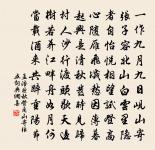 一作九月九日峴山寄
張子容北山白雲裏隱
者自怡悅相望試登高
心隨雁飛滅愁因薄暮
起興是清秋發時見歸
村人沙行渡頭歇天邊
樹若薺江畔洲如月何
當載酒來共醉重陽節
孟浩然秋登山寄張
五